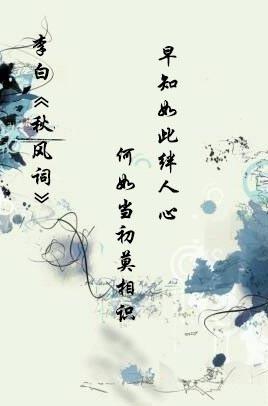 早知如此绊人心
何如当初莫相识
李白《秋风词》